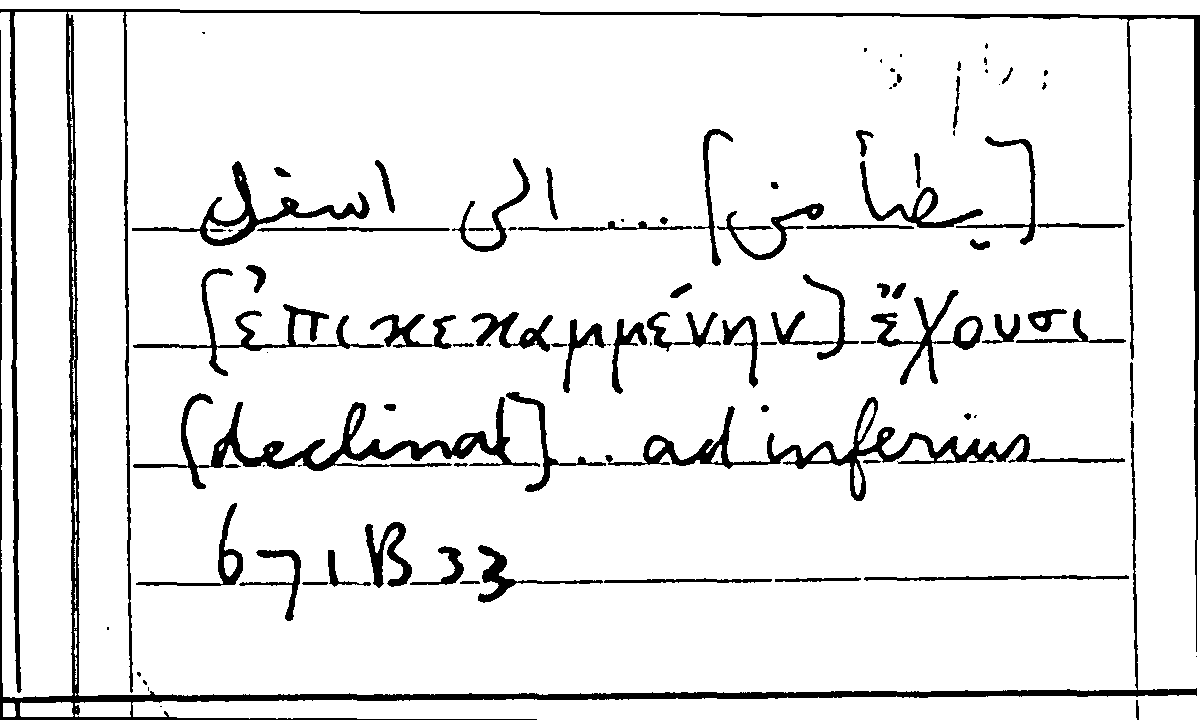 [يطأمن] ... الى اسفل
[ἐπικεκαμμένην] ἔχουσι
[declinat]... ad inferius
671B33